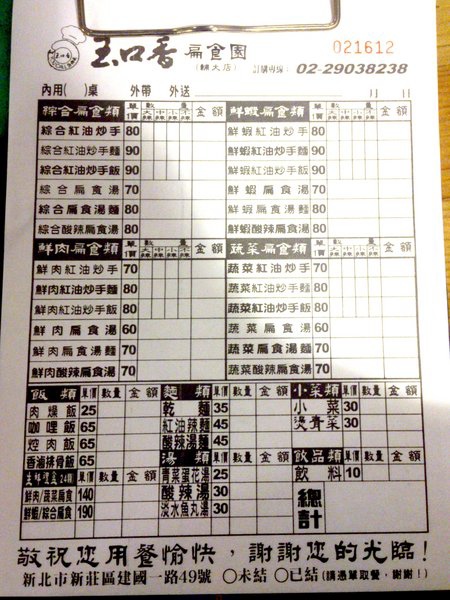 玉口香 扁食園
(輔大店)
021612
訂購專線: 02-29038238
內用( )桌 外帶 外送 月 日
綜合扁食類 單價 數量 大辣 中辣 小辣 不辣 金額
綜合紅油炒手 80
綜合紅油炒手麵 90
綜合紅油炒手飯 90
綜合扁食湯 70
綜合扁食湯麵 80
綜合酸辣扁食湯 80
鮮蝦扁食類 單價 數量 大辣 中辣 小辣 不辣 金額
鮮蝦紅油炒手 80
鮮蝦紅油炒手麵 90
鮮蝦紅油炒手飯 90
鮮蝦扁食湯 70
鮮蝦扁食湯麵 80
鮮蝦酸辣扁食湯 80
鮮肉扁食類 單價 數量 大辣 中辣 小辣 不辣 金額
鮮肉紅油炒手 70
鮮肉紅油炒手麵 80
鮮肉紅油炒手飯 80
鮮肉扁食湯 60
鮮肉扁食湯麵 70
鮮肉酸辣扁食湯 70
蔬菜扁食類 單價 數量 大辣 中辣 小辣 不辣 金額
蔬菜紅油炒手 70
蔬菜紅油炒手麵 80
蔬菜紅油炒手飯 80
蔬菜扁食湯 60
蔬菜扁食湯麵 70
蔬菜酸辣扁食湯 70
飯類 單價 數量 金額
肉燥飯 25
咖哩飯 65
焢肉飯 65
香滷排骨飯 65
生鮮禮盒24顆 單價 數量 金額
鮮肉/蔬菜扁食 140
鮮蝦/綜合扁食 190
麵類 單價 數量 金額
乾麵 35
紅油辣麵 45
酸辣湯麵 45
湯類 單價 數量 金額
青菜蛋花湯 25
酸辣湯 30
淡水魚丸湯 30
小菜類 單價 數量 金額
小菜 30
燙青菜 30
飲品類 單價 數量 金額
飲料 10
總計
敬祝您用餐愉快,謝謝您的光臨!
新北市新莊區建國一路49號 ○未結 ○已結(請憑單取餐,謝謝!)